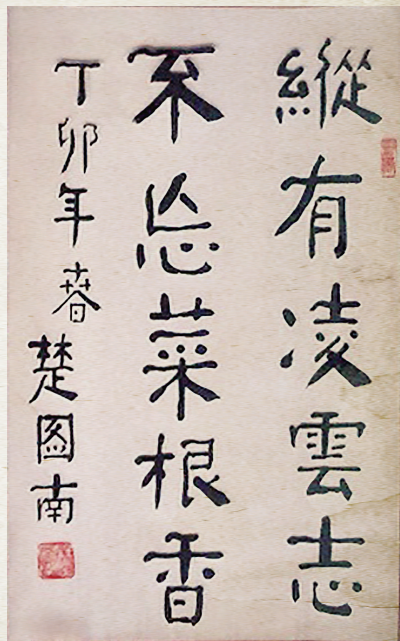 縱有凌雲志
不忘菜根香
丁卯年春 楚图南